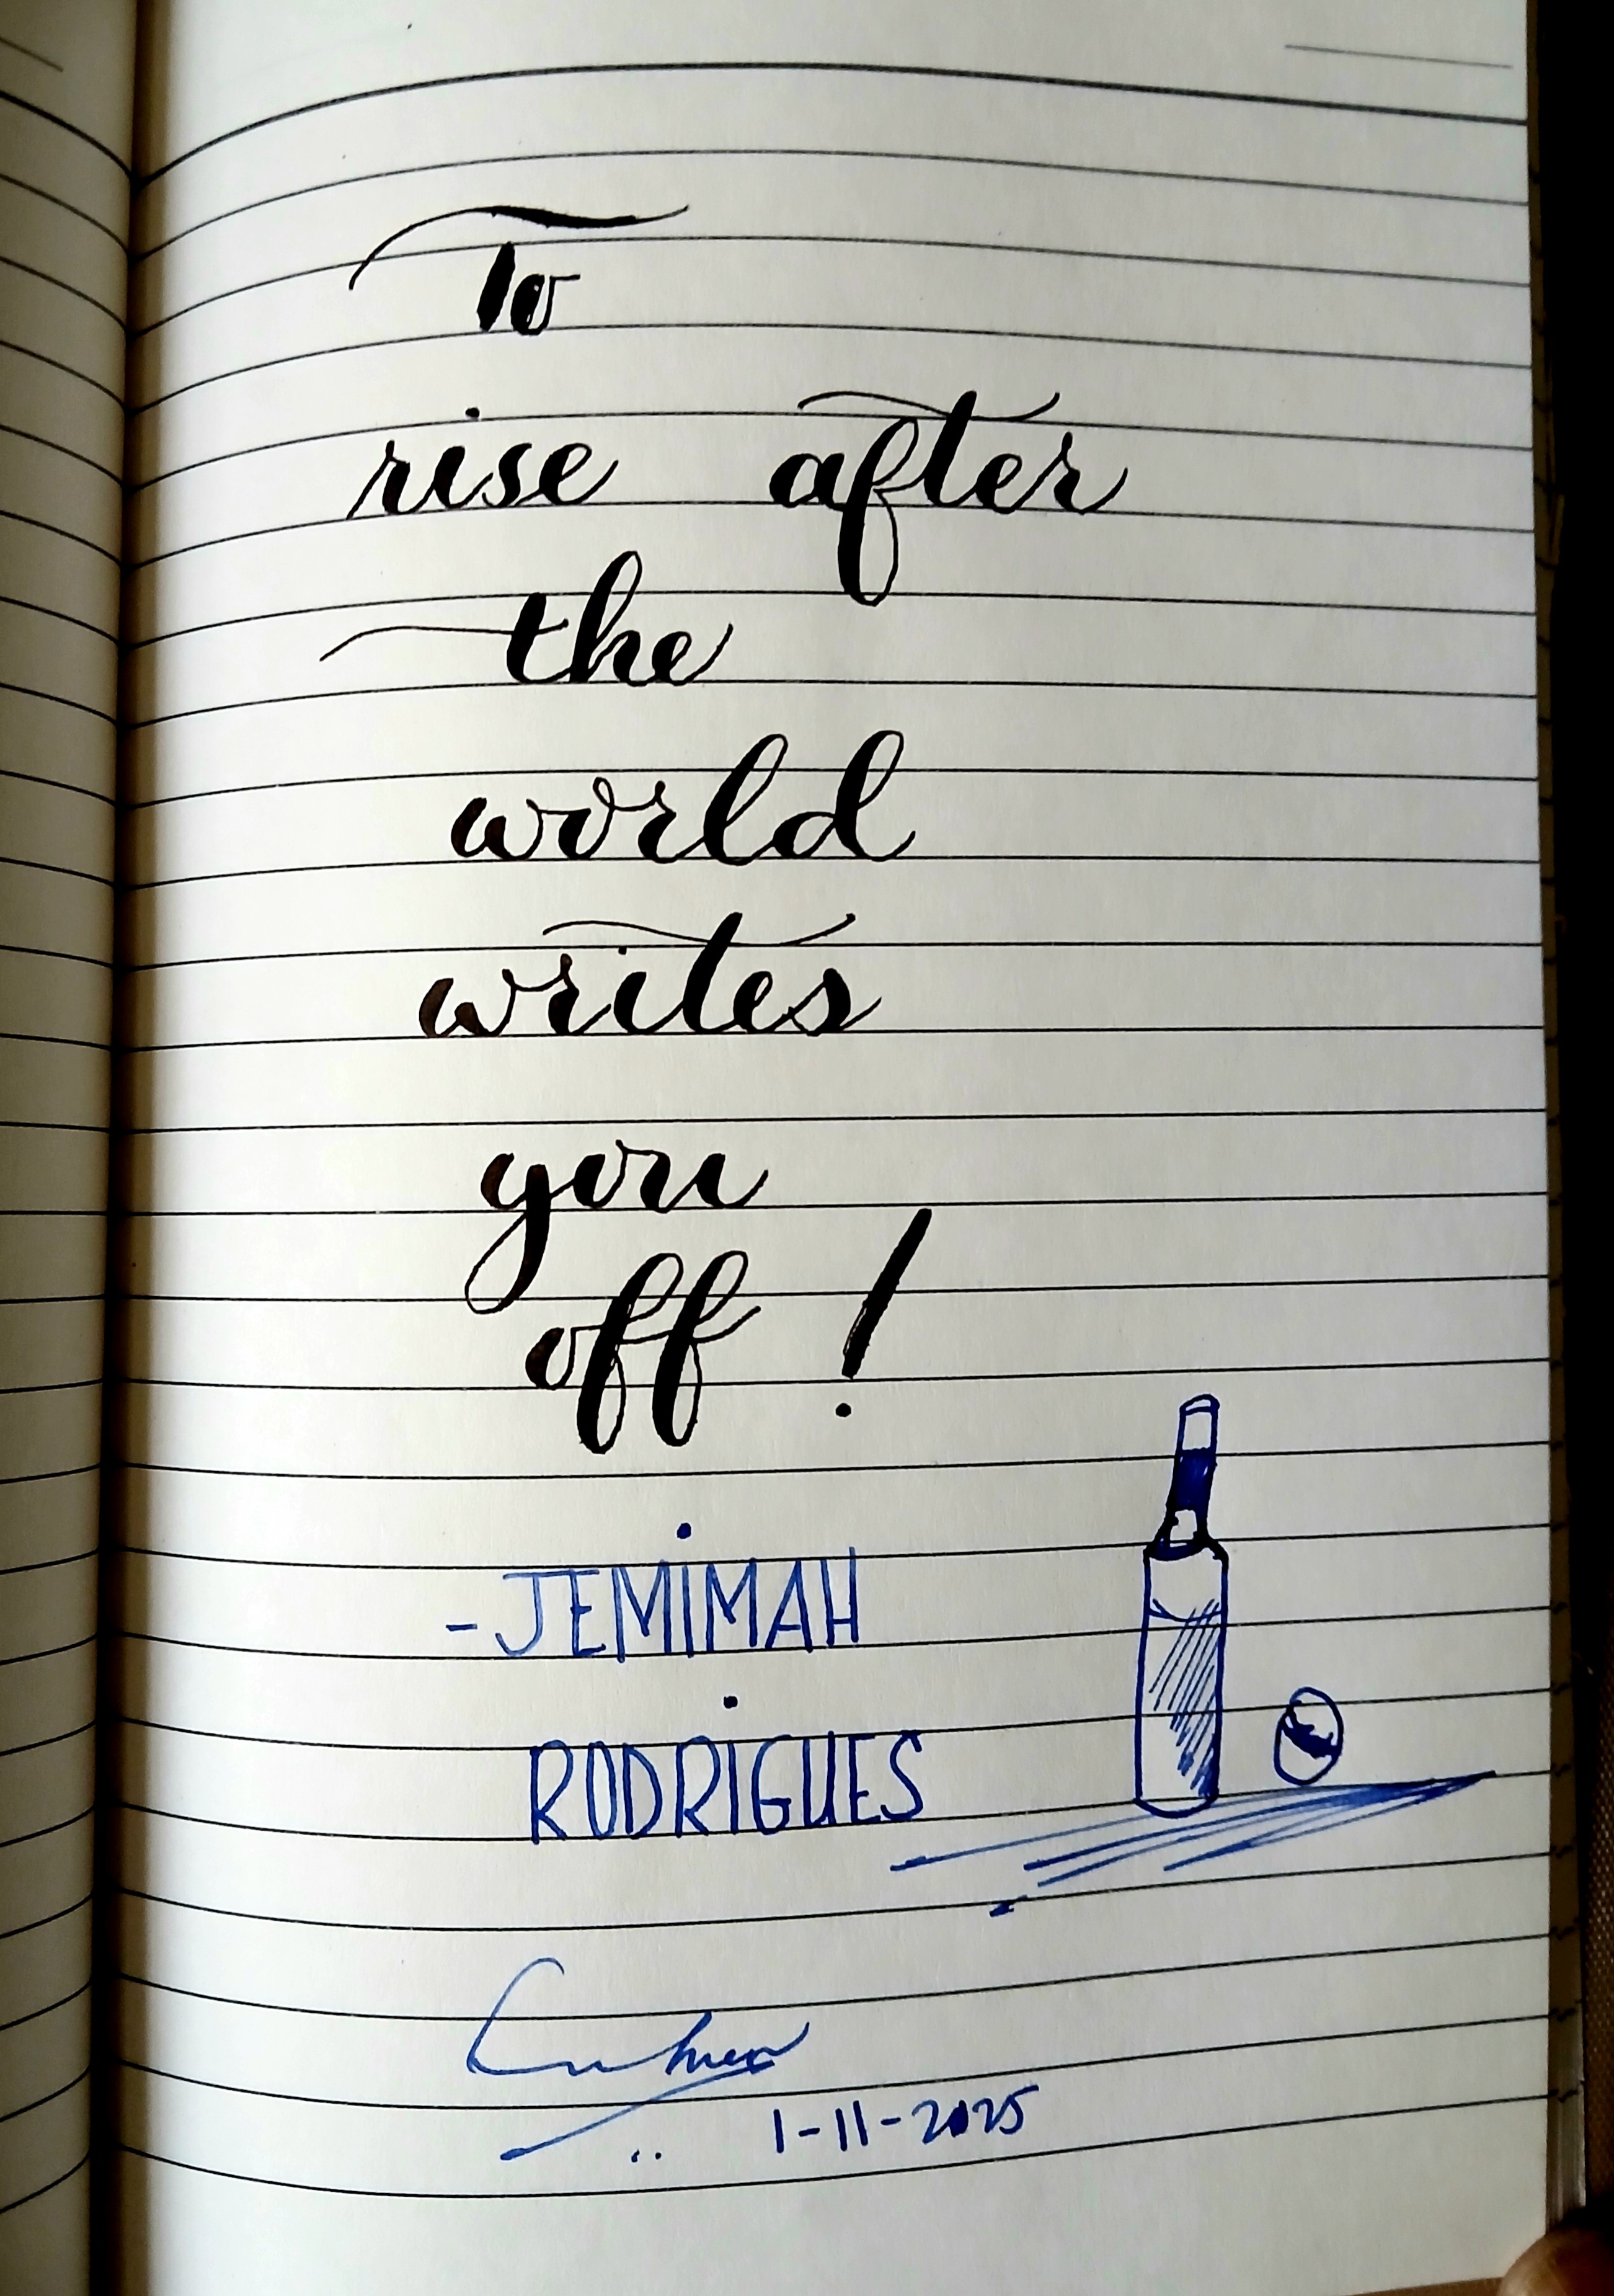 To
rise after
the
world
writes
you
off!
-JEMIMAH
RODRIGUES
1-11-2025